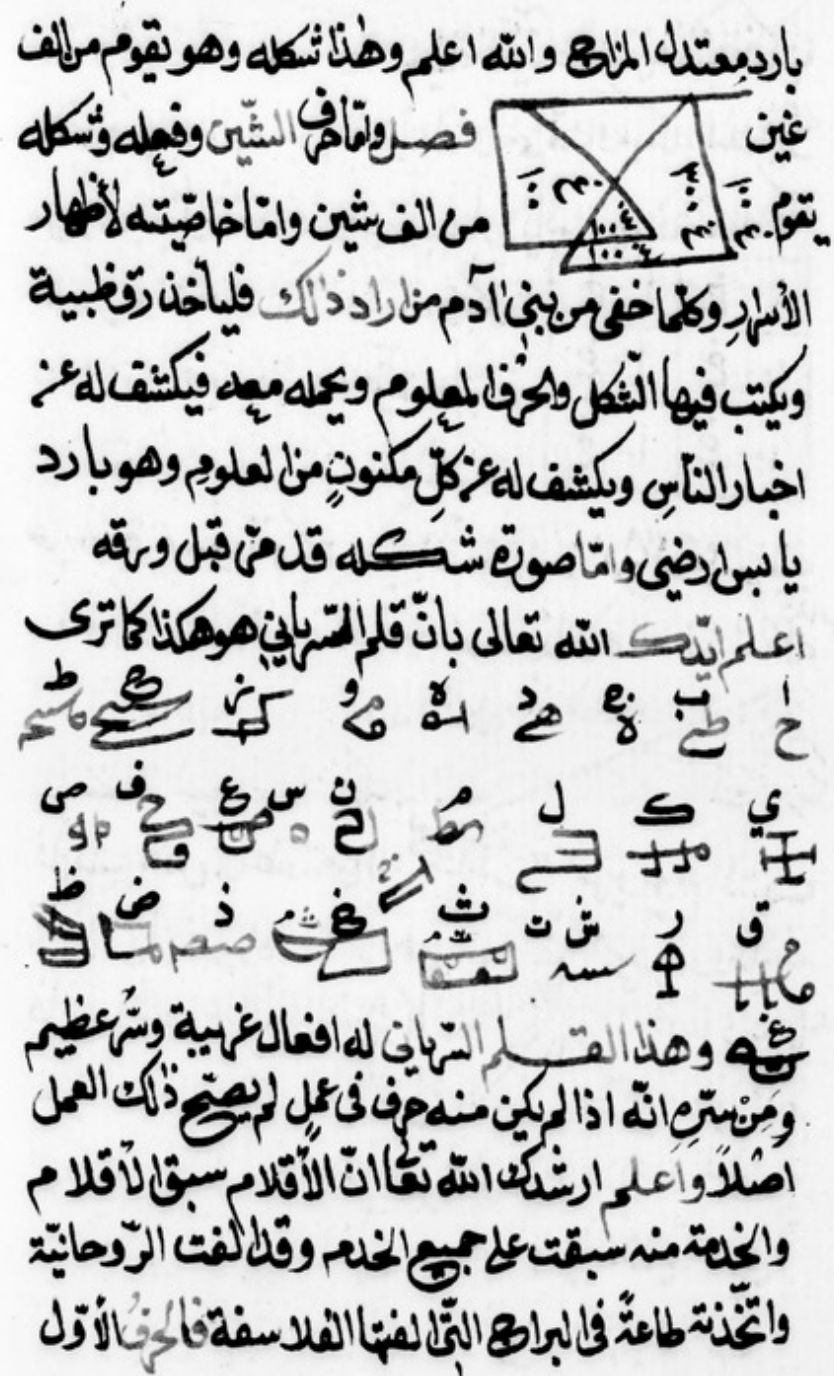 بارد معتدل المزاج والله اعلم وهٰذا شكله وهو يقوم من الف
غين فصل وامّا حرف الشّين وفعله وشكله
يقوم من الف شين وامّا خاصّيّته لأظهار
الأسرارِ وكلما خفى من بني اآدم من اراد ذالك فليأخذ رق ظبية
ويكتب فيها الشّكل والحُرف المعلوم ويحمله معه فيكشف له عن
اخبار النّاسِ ويكشف له عن كلّ مكنونٍ من العلومِ وهو بارد
يابس ارضيّ وامّا صورة شكله قد مرّ قبل ورقه
اعلم ايّدك الله تعالى بانّ قلم السّرياني هو هكذا كما ترى
ا ب ج د ه و ز ح ط
ي ك ل م ن س ع ف ص
ق ر ش ت ث خ ذ ض ظ
غ وهذا القلم السّرياني له افعال غريبة وسُرّ عظيم
ومِنْ سرّهِ انّه اذا لم يكن منه حرف في عملٍ لم يصحّ ذٰلك العمل
اصْلاً واعلم ارشدك الله تعَا انّ الأقلام سبق الأقلام
والخدمة منه سبقت على جميع الخدم وقد الفت الرّوحانيّة
واتّخذته طاعةً في البراج التّي الفتها الفلاسفة فالحرفُ الأوّل